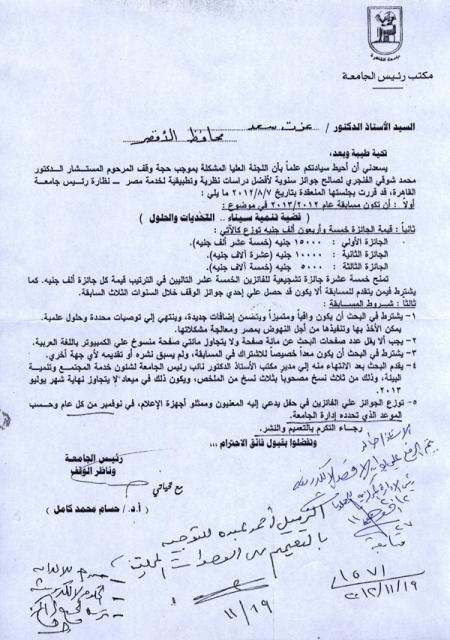 جامعة القاهرة
مكتب رئيس الجامعة
السيد الأستاذ الدكتور / عزت سعد محافظ الأقصر
تحية طيبة وبعد،
يسعدني أن أحيط سيادتكم علماً بأن اللجنة العليا المشكلة بموجب حجة وقف المرحوم المستشار الدكتور
محمد شوقي الفنجري لصالح جوائز سنوية لأفضل دراسات نظرية وتطبيقية لخدمة مصر – نظارة رئيس جامعة
القاهرة، قد قررت بجلستها المنعقدة بتاريخ ٢٠١٢/٨/٧ ما يلي :
أولاً : أن تكون مسابقة عام ٢٠١٣/٢٠١٢ في موضوع :
( قضية تنمية سيناء .. التحديات والحلول )
ثانياً : قيمة الجائزة خمسة وأربعون ألف جنيه توزع كالآتي :
الجائزة الأولي : ١٥٠٠٠ جنيه (خمسة عشر ألف جنيه).
الجائزة الثانية : ١٠٠٠٠ جنيه (عشرة آلاف جنيه).
الجائزة الثالثة : ٥٠٠٠ جنيه (خمسة آلاف جنيه).
تمنح خمسة عشرة جائزة تشجيعية للفائزين الخمسة عشر التاليين في الترتيب قيمة كل جائزة ألف جنيه. كما
يشترط فيمن يتقدم للمسابقة ألا يكون قد حصل علي إحدي جوائز الوقف خلال السنوات الثلاث السابقة.
ثالثاً : شروط المسابقة :
١- يشترط في البحث أن يكون وافياً ومتميزاً ويتضمن إضافات جديدة، وينتهي إلي توصيات محددة وحلول علمية.
يمكن الأخذ بها وتنفيذها من أجل النهوض بمصر ومعالجة مشكلاتها.
٢- يجب ألا يقل عدد صفحات البحث عن مائة صفحة ولا يتجاوز مائتي صفحة منسوخ علي الكمبيوتر باللغة العربية.
٣- يشترط في البحث أن يكون معداً خصيصاً للاشتراك في المسابقة، ولم يسبق نشره أو تقديمه لأي جهة أخري.
٤- يقدم البحث بعد الانتهاء منه إلي مدير مكتب الأستاذ الدكتور نائب رئيس الجامعة لشئون خدمة المجتمع وتنمية
البيئة، وذلك من ثلاث نسخ مصحوباً بثلاث نسخ من الملخص، ويكون ذلك في ميعاد لا يتجاوز نهاية شهر يوليو
٢٠١٣.
٥- توزع الجوائز علي الفائزين في حفل يدعي إليه المعنيون وممثلو أجهزة الإعلام، في نوفمبر من كل عام وحسب
الموعد الذي تحدده إدارة الجامعة.
رجاء التكرم بالتعميم والنشر.
وتفضلوا بقبول فائق الاحترام ،،،
رئيس الجامعة
وناظر الوقف
مع تحياتي
(أ.د/ حسام محمد كامل)
١١/١٩
١٥٧١
٢٠١٢/١١/١٩